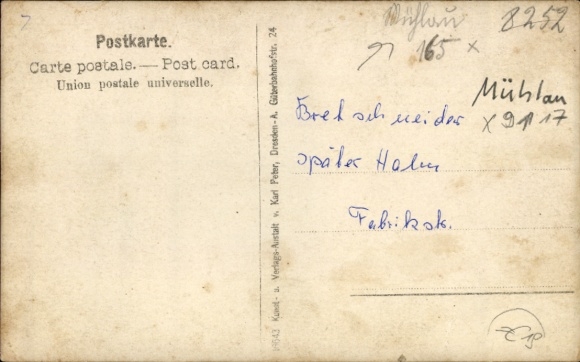 Postkarte.
Carte postale. — Post card.
Union postale universelle.
Kunst- u. Verlags-Anstalt v. Karl Peter, Dresden-A. Güterbahnhofstr. 24
Mühlau 8252
165 x
Mühlau
x 9117
Bretschneider
später Halm
Fabrikstr.